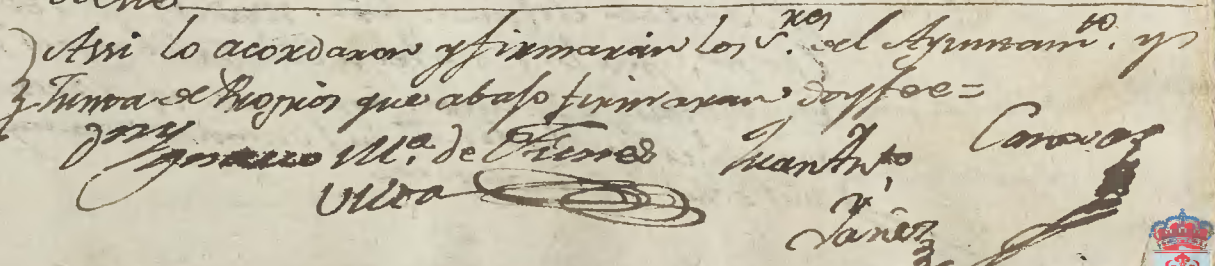 Assi lo acordaron yfirmarán los S.res del Ayuntam.to y
Junta de Propios que abajo firmaran doyfee=
Dn Ygnacio M.a de Funes
Ulloa
Juan Anto
Yañez